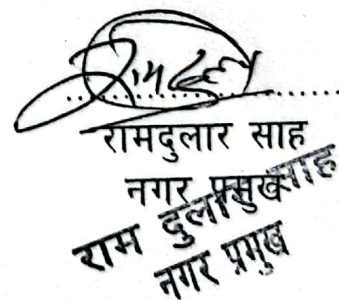 रामदुलार साह
नगर प्रमुख
राम दुलार साह
नगर प्रमुख